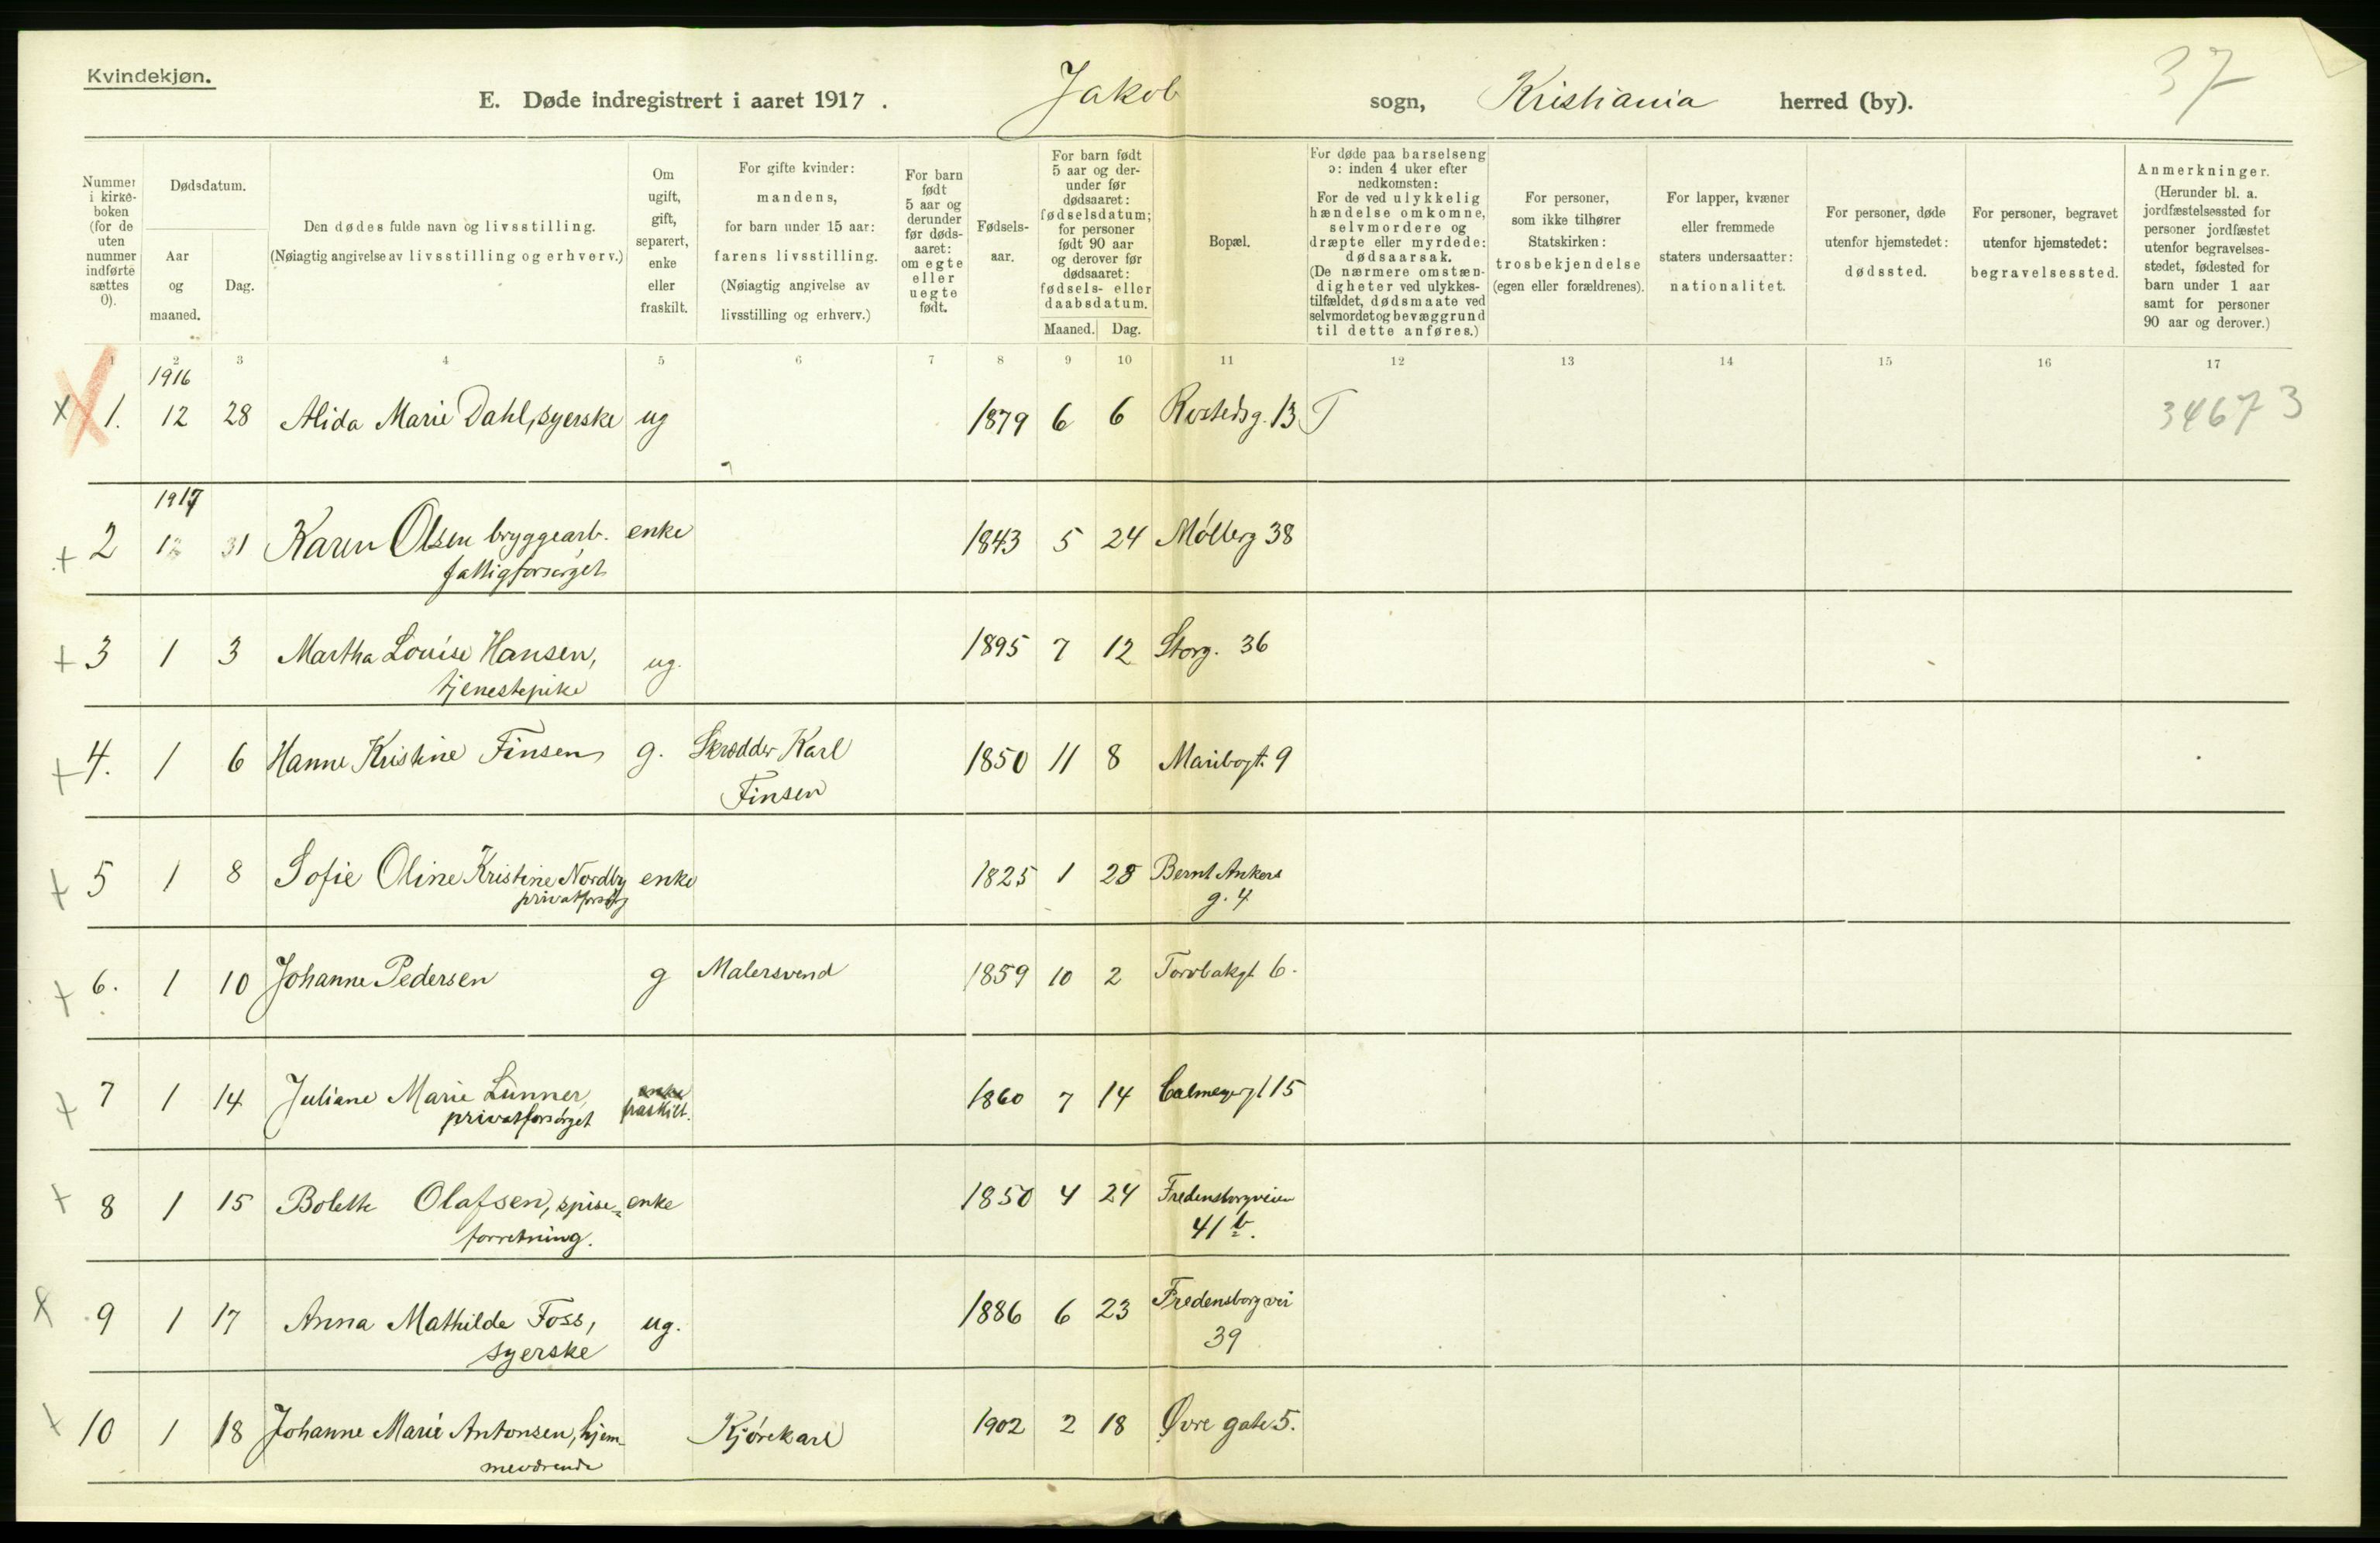 Kvindekjøn.
37
E. Døde indregistrert i aaret 1917. Jakob sogn, Kristiania herred (by).
Nummer i kirke-boken (for de uten nummer indførte sættes 0).
Dødsdatum.
Aar og maaned.
Dag.
Den dødes fulde navn og livsstilling.
(Nøiagtig angivelse av livsstilling og erhverv.)
Om ugift, gift, separert, enke eller fraskilt.
For gifte kvinder: mandens, for barn under 15 aar: farens livsstilling. (Nøiagtig angivelse av livsstilling og erhverv.)
For barn født 5 aar og derunder før døds-aaret: om egte eller uegte født.
Fødsels-aar.
For barn født 5 aar og der-under før dødsaaret: fødselsdatum; for personer født 90 aar og derover før dødsaaret: fødsels- eller daabsdatum.
Maaned. Dag.
Bopæl.
For døde paa barselseng ɔ: inden 4 uker efter nedkomsten: For de ved ulykkelig hændelse omkomne, selvmordere og dræpte eller myrdede: dødsaarsak. (De nærmere omstæn-digheter ved ulykkes-tilfældet, dødsmaate ved selvmordet og bevæggrund til dette anføres.)
For personer, som ikke tilhører Statskirken: trosbekjendelse (egen eller forældrenes).
For lapper, kvæner eller fremmede staters undersaatter: nationalitet.
For personer, døde utenfor hjemstedet: dødssted.
For personer, begravet utenfor hjemstedet: begravelsessted.
Anmerkninger. (Herunder bl. a. jordfæstelsessted for personer jordfæstet utenfor begravelses-stedet, fødested for barn under 1 aar samt for personer 90 aar og derover.)
1 2 3 4 5 6 7 8 9 10 11 12 13 14 15 16 17
1916
x 1. 12 28 Alida Marie Dahl, syerske ug 1879 6 6 Rostedsg. 13 T 34673
1917
+ 2 12 31 Karen Olsen bryggearb. enke 1843 5 24 Møllerg 38
fattigforsørget
+ 3 1 3 Martha Louise Hansen, ug. 1895 7 12 Storg. 36
tjenestepike
+ 4. 1 6 Hanne Kristine Finsen g. Skrædder Karl 1850 11 8 Maribogt. 9
Finsen
+ 5 1 8 Sofie Oline Kristine Nordby enke 1825 1 28 Bernt Ankers
privatforsørg g. 4
+ 6. 1 10 Johanne Pedersen g Malersvend 1859 10 2 Torvbakgt 6.
+ 7 1 14 Juliane Marie Lunner, enke 1860 7 14 Calmeyergt 15
privatforsørget fraskilt.
+ 8 1 15 Bolette Olafsen, spise= enke 1850 4 24 Fredensborgveien
forretning. 41 b.
x 9 1 17 Anna Mathilde Foss, ug. 1886 6 23 Fredensborgvei
syerske 39
+ 10 1 18 Johanne Marie Antonsen, hjem- Kjørekarl 1902 2 18 Øvre gate 5.
meværende